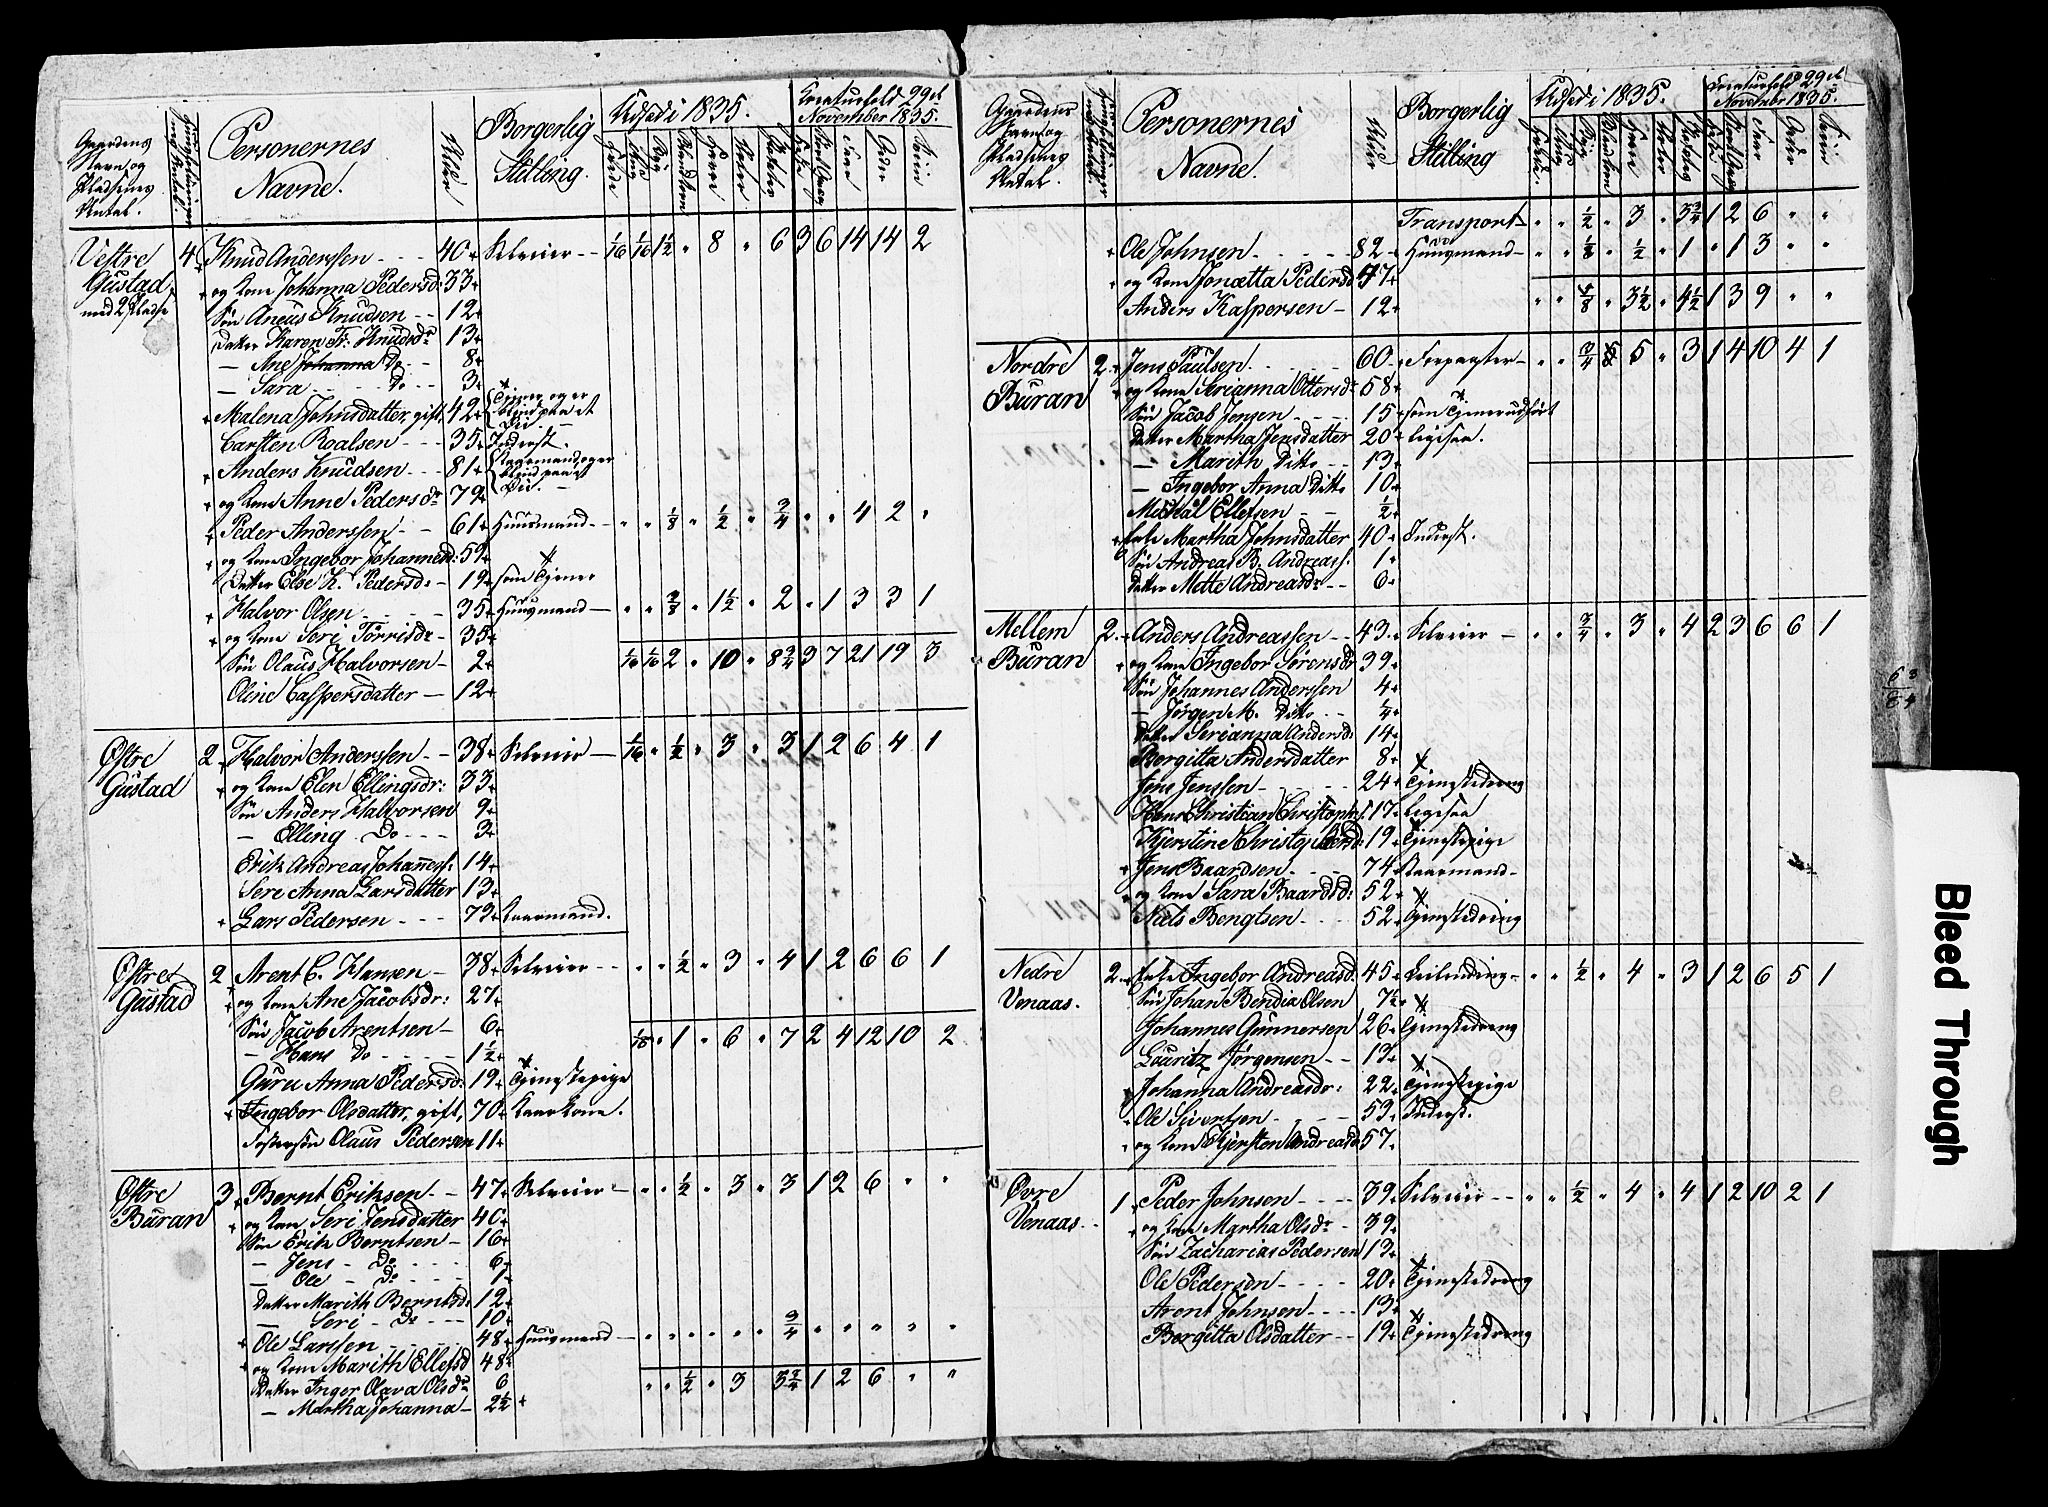 Gaardens Navn og Pladsenes Antal.
Personernes Navne.
Alder
Borgerlig Stilling.
Udsæd i 1835.
Kreaturhold 29de November 1835.
Vestre Gustad med 2 Pladse 4 Knud Anderssen 40 Selveier 1/16 1/16 1½ " 8 " 6 3 6 14 14 2
og Kone Johanna Pedersd: 33
Søn Aneus Knudsen 12
Datter Karen Fr: Knudsdr 13
— Ane Johanna Do 8
— Sara Do 3
Malena Johnsdatter, gift, 42
Carsten Roalsen 35 Inderst.
Anders Knudsen 81
og Kone Anne Pedersdr 79
Peder Anderssen 61 Huusmand " " 1/8 " ½ " ¾ " " 4 2 "
og Kone Ingebor Johannesd: 59
Datter Else K. Pedersdr 19 som Tjener
Halvor Olsen 35 Huusmand " " 3/8 " 1½ " 2 " 1 3 3 1
og Kone Seri Tørrisdr 35
Søn Olaus Halvorsen 2
1/16 1/16 2 " 10 " 8¾ 3 7 21 19 3
Oline Caspersdatter 12
Østre Gustad 2 Halvor Anderssen 38 Selveier 1/16 " ½ " 3 " 3 1 2 6 4 1
og Kone Elen Ellingsdr: 33
Søn Anders Halvorsen 9
— Elling Do 3
Erik Andreas Johanness: 14
Sere Anna Larsdatter 13
Lars Pedersen 73 Kaarmand.
Østre Gustad 2 Arent C. Hansen 38 Selveier " " ½ " 3 " 4 1 2 6 6 1
og Kone Ane Jacobsdr: 27
Søn Jacob Arentsen 6
1/16 " 1 " 6 " 7 2 4 12 10 2
— Hans Do 1½
Guru Anna Pedersd: 19 Tjenestepige
Ingebor Olsdatter, gift, 70 Kaarkone.
Fostersøn Olaus Pedersen 11
Østre Buran 3 Bernt Eriksen 47 Selveier " " ½ " 3 " 3 1 2 6 " "
og Kone Seri Jensdatter 40
Søn Erik Berntsen 16
— Jens Do 6
— Ole Do 1
Datter Marith Berntsd: 12
— Seri Do 10
Ole Larssen 48 Huusmand " " " " " " ¾ " " " " "
og Kone Marith Ellefsd 48
Datter Inger Olava Olsdr 6
" " ½ " 3 3¾ 1 2 6 " "
— Martha Johanna 2½
Gaardens Navn og Pladsenes Antal.
Personernes Navne.
Alder
Borgerlig Stilling
Udsæd i 1835.
Kreaturhold 29de November 1835.
Transport " " ½ " 3 " 3¾ 1 2 6 " "
Ole Johnsen 82 Huusmand " " 1/8 " ½ " 1 " 1 3 " "
og Kone Jonetta Pedersd 47
Anders Kaspersen 12
" " 5/8 " 3½ " 4½ 1 3 9 " "
Nordre Buran 2 Jens Paulsen 60 Forpagter " " ¾ 5 " 3 1 4 10 4 1
og Kone Serianna Ottersdr 58
Søn Jacob Jensen 15 som Tjener udført
Datter Martha Jensdatter 20 ligesaa.
— Marith Ditto 13
— Ingebor Anna Ditto 10
Michal Ellefsen ½
Enke Martha Johnsdatter 40 Inderst.
Søn Andreas B. Andreass: 1
Datter Mette Andreasdr 6
Mellem Buran 2 Anders Andreassen 43 Selveier " " ¾ " 3 " 4 2 3 6 6 1
og Kone Ingebor Sørensdr 39
Søn Johannes Anderssen 4
— Jørgen M. Ditto ¼
Datter Serianna Andersd: 14
Borgitta Andersdatter 8
Jens Jenssen 24 Tjenestedreng
Hans Christian Christophs: 17 Ligesaa
Kjerstine Christophersd: 19 Tjenestepige
Jens Baardsen 74 Kaarmand
og Kone Sara Baardsd: 52
Niels Bengtsen 52 Tjenestedreng
Nedre Venaas. 2 Enke Ingebor Andreasd: 45 Leilending " " ½ " 4 " 3 1 2 6 5 1
Søn Johan Bendix Olsen 7½
Johannes Gunnersen 26 Tjenestedreng
Lauritz Jørgensen 13
Johanna Andreasdr: 22 Tjenestepige
Ole Sivertsen 53 Inderst.
og Kone Kjersten Andreasd 57
Øvre Venaas. 1 Peder Johnsen 39 Selveier " " ½ " 4 " 4 1 2 10 2 1
og Kone Martha Olsdr 39
Søn Zacharias Pedersen 13
Ole Pedersen 20 Tjenestedreng
Arent Johnsen 13
Borgitta Olsdatter 19 Tjenestedreng
Bleed Through